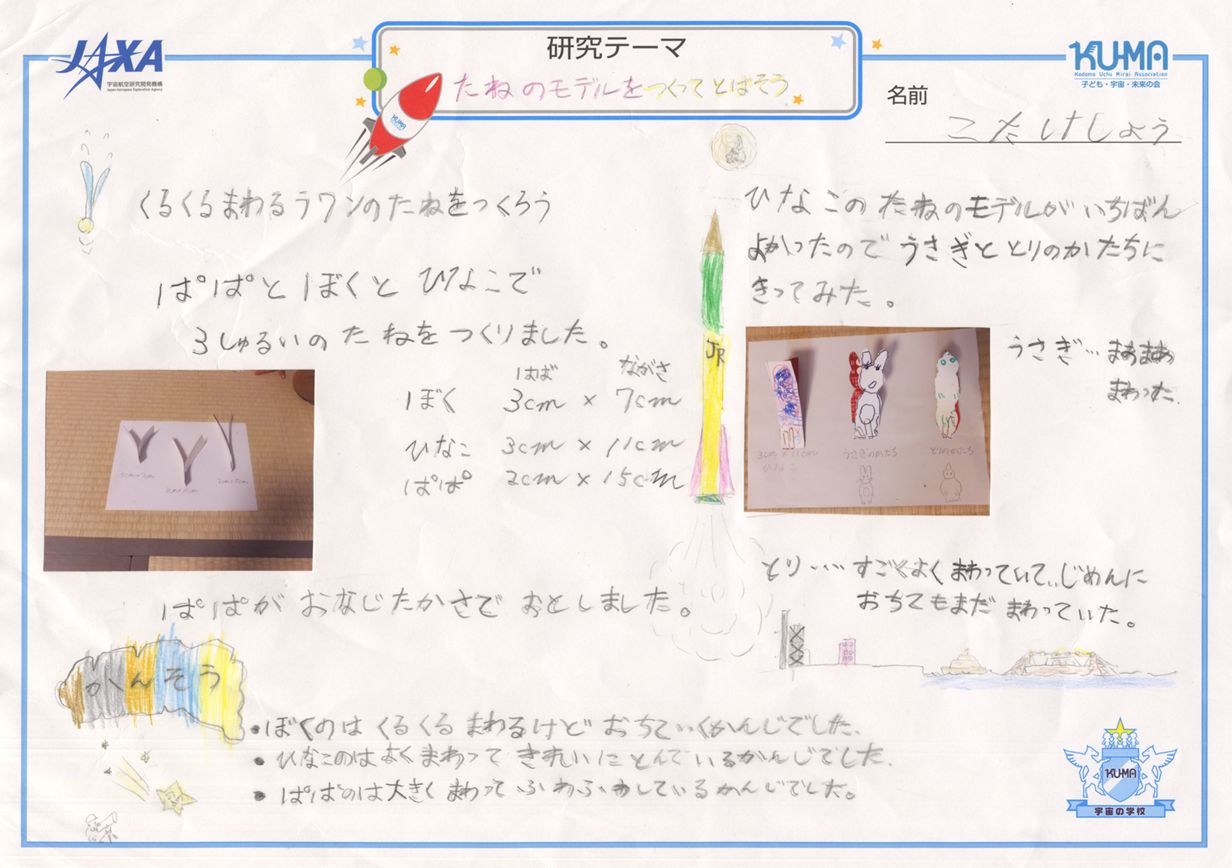 JAXA
宇宙航空研究開発機構
Japan Aerospace Exploration Agency
研究テーマ
たねのモデルをつくってとばそう
KUMA
KUMA
Kodomo Uchu Mirai Association
子ども・宇宙・未来の会
名前
こたけしょう
くるくるまわるラワンのたねをつくろう
ぱぱとぼくとひなこで
3しゅるいのたねをつくりました。
はば ながさ
ぼく 3cm × 7cm
ひなこ 3cm × 11cm
ぱぱ 2cm × 15cm
ぱぱがおなじたかさでおとしました。
ひなこのたねのモデルがいちばん
よかったのでうさぎととりのかたちに
きってみた。
JR
うさぎ…まあまあ
まわった.
3cm×11cm
ひなこ
うさぎのかたち
とりのかたち
とり……すごくよくまわっていて、じめんに
おちてもまだまわっていた。
かんそう
・ぼくのはくるくるまわるけどおちていくかんじでした.
・ひなこのはよくまわってきれいにとんでいるかんじでした.
・ぱぱのは大きくまわってふわふわしているかんじでした。
KUMA
宇宙の学校